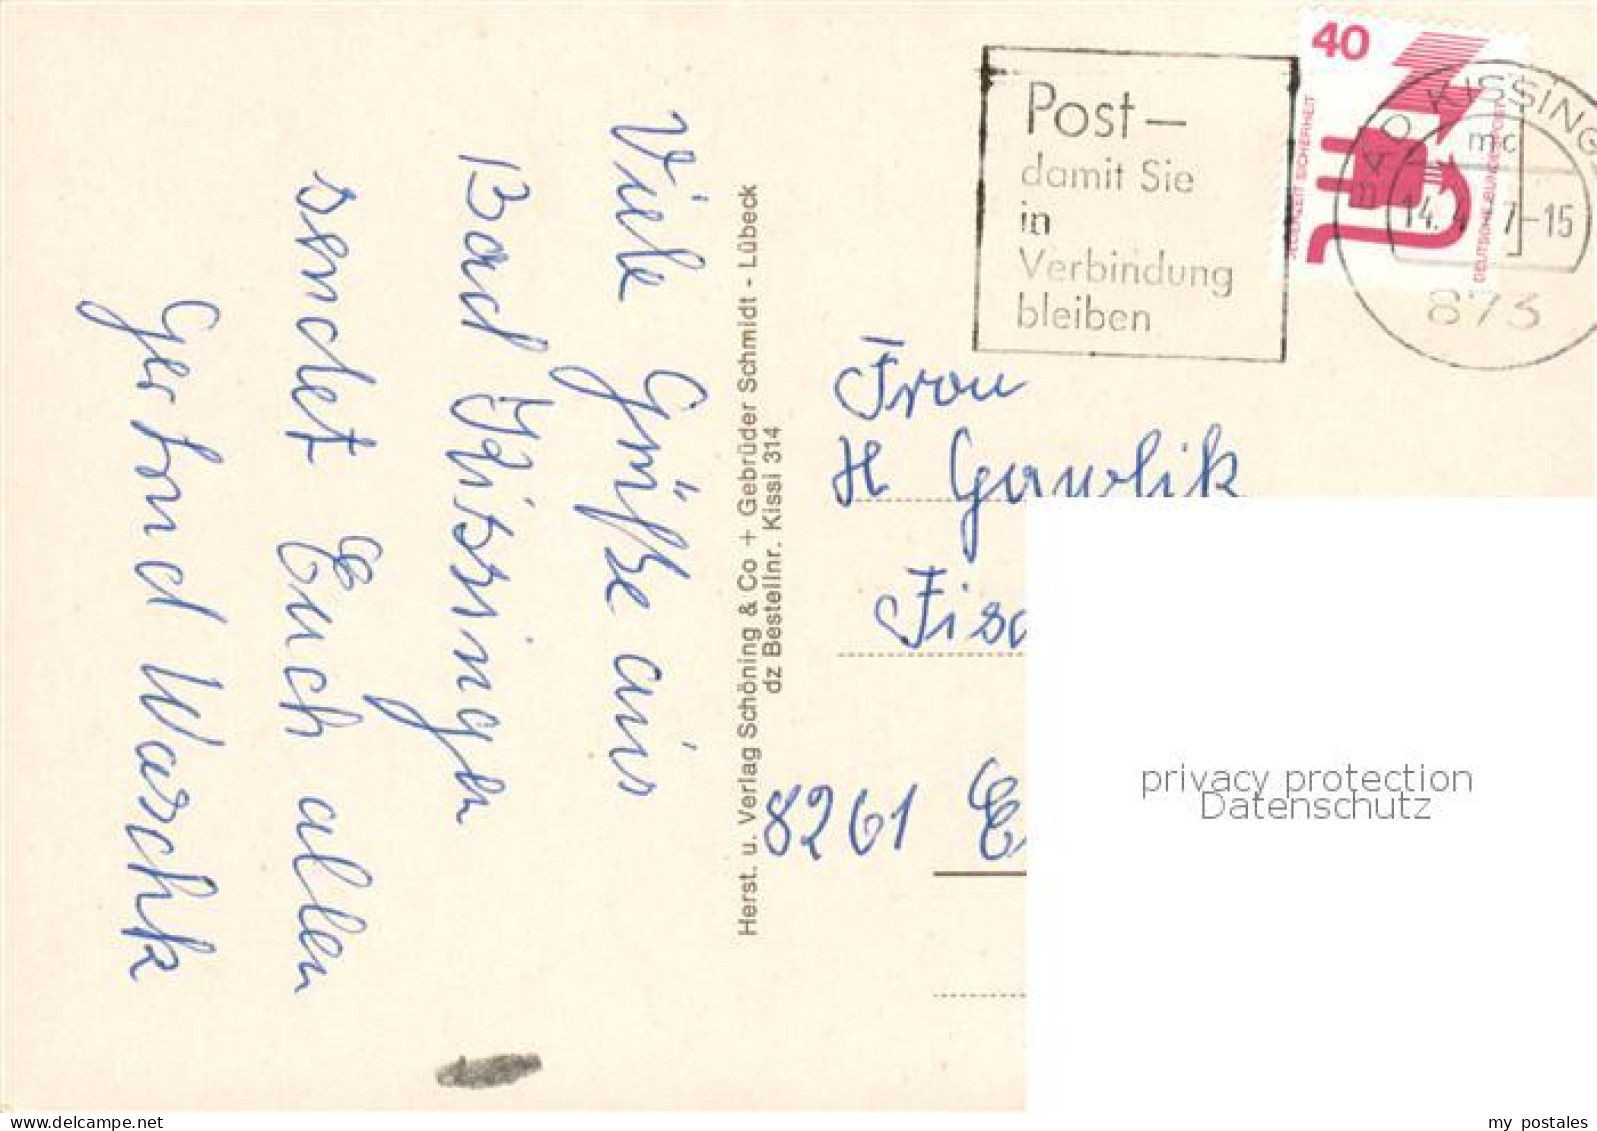 Viele Grüße aus
Bad Kissingen
sendet Euch allen
Gertrud Warschk
Herst. u. Verlag Schöning & Co + Gebrüder Schmidt - Lübeck
dz Bestellnr. Kissi 314
Post –
damit Sie
in
Verbindung
bleiben
40
JEDERZEIT SICHERHEIT
DEUTSCHE BUNDESPOST
BAD KISSING
mc
14. 7-15
873
Frau
H Gawlik
Fisc
8261
privacy protection
Datenschutz
www.delcampe.net
my_postales